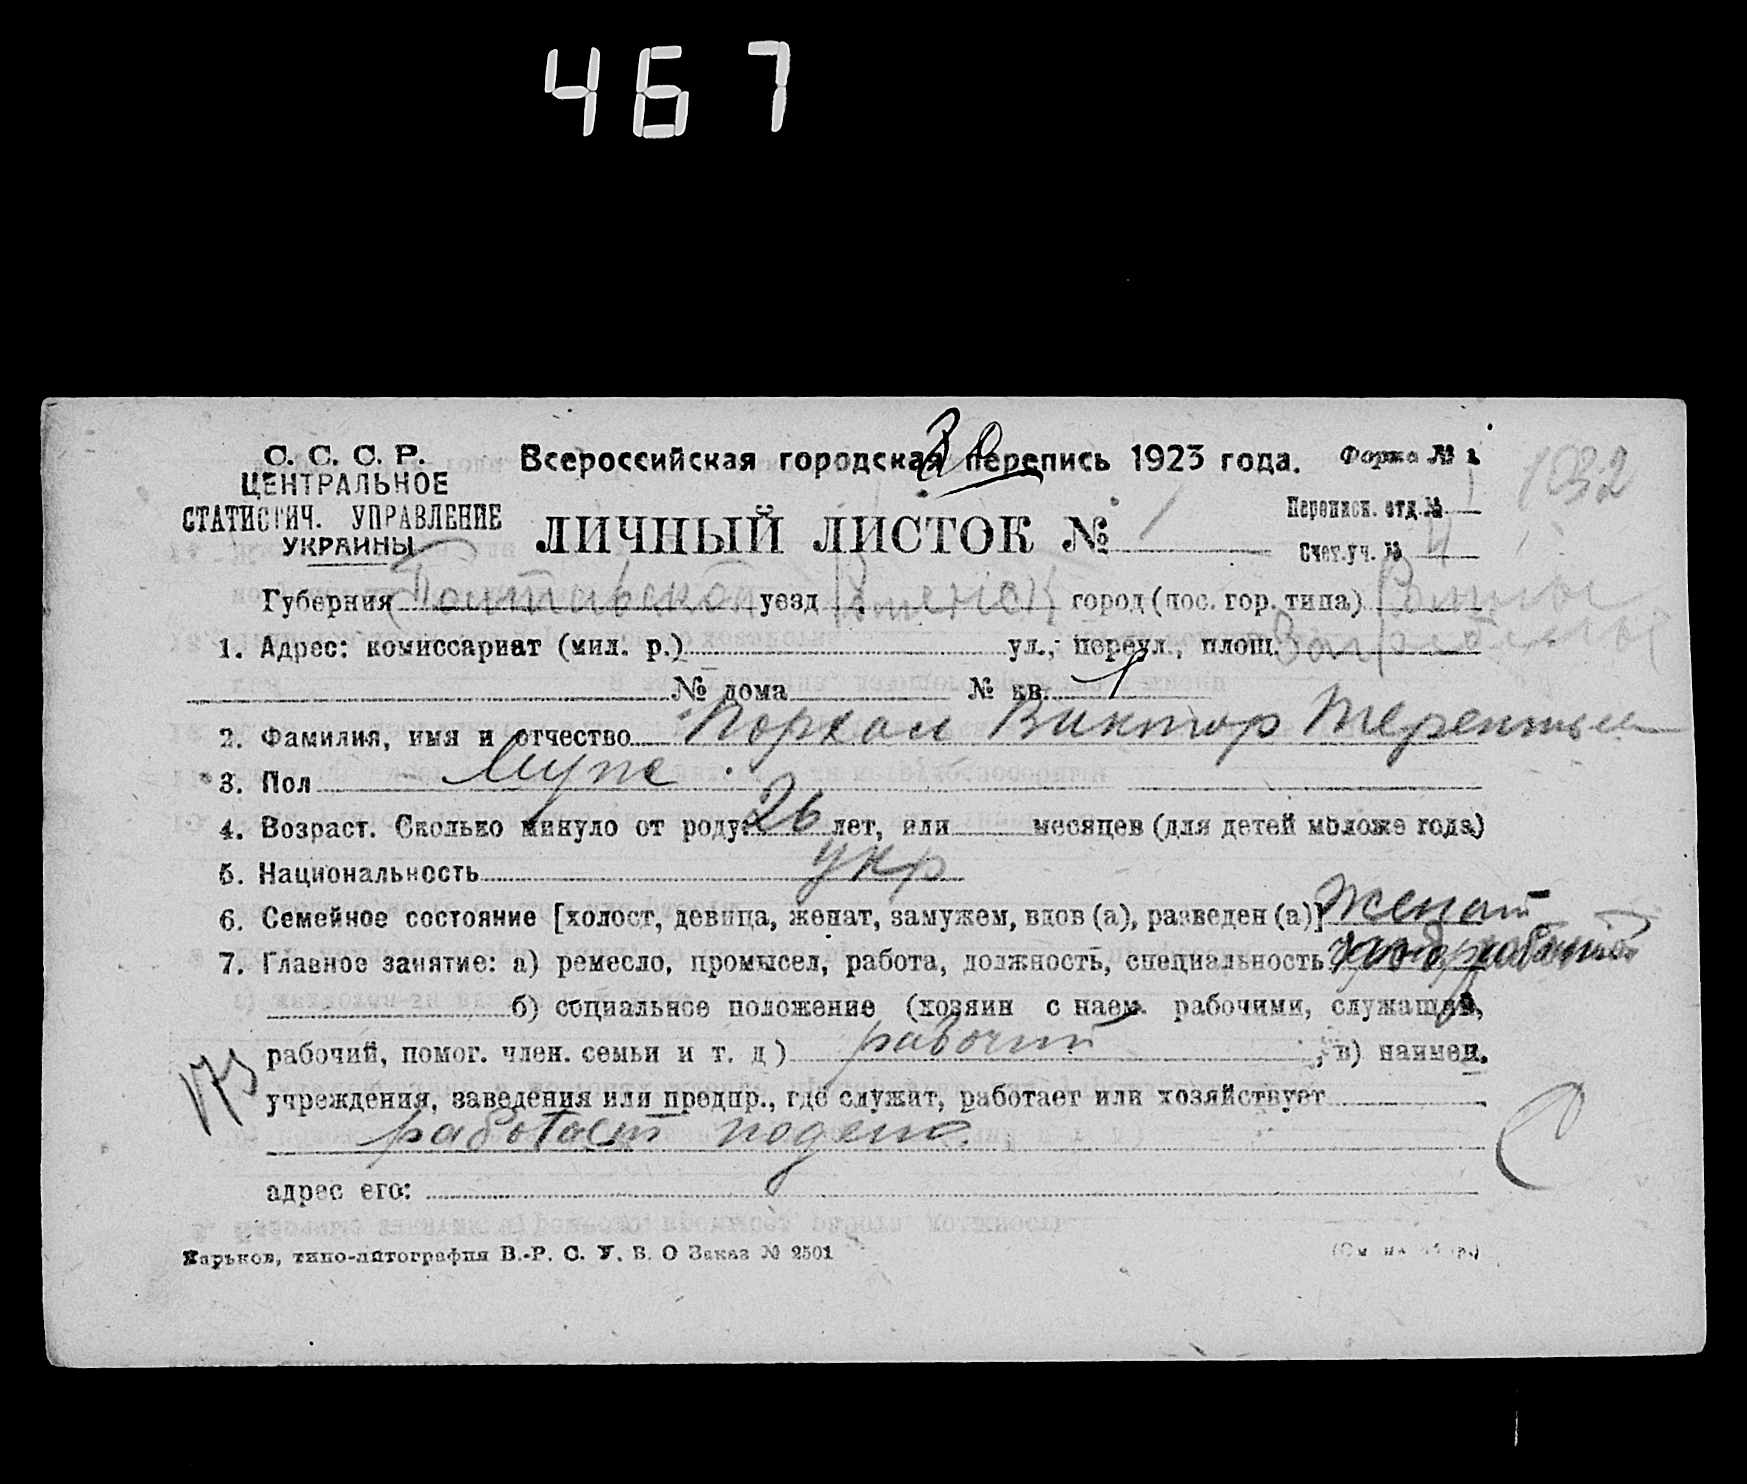 467
С. С. С. Р.
ЦЕНТРАЛЬНОЕ
СТАТИСТИЧ. УПРАВЛЕНИЕ
УКРАИНЫ
Всероссийская городская перепись 1923 года.
Форма № 1
1032
ЛИЧНЫЙ ЛИСТОК № 1
Переписн. отд. № 1
Счет. уч. № 4
Губерния Полтавской уезд Роменск город (пос. гор. типа) Ромны
1. Адрес: комиссариат (мил. р.) ул., переул., площ.
№ дома № кв. 1
2. Фамилия, имя и отчество Виктор Терентьев
3. Пол Муж.
4. Возраст. Сколько минуло от роду: 26 лет, или месяцев (для детей моложе года)
5. Национальность укр
6. Семейное состояние [холост, девица, женат, замужем, вдов (а), разведен (а)] женат
7. Главное занятие: а) ремесло, промысел, работа, должность, специальность
б) социальное положение (хозяин с наем. рабочими, служащий,
рабочий, помог. член. семьи и т. д) рабочий, в) наимен.
173
учреждения, заведения или предпр., где служит, работает или хозяйствует
работает поденно
адрес его:
Харьков, типо-литография В.-Р. С. У. В. О Заказ № 2501